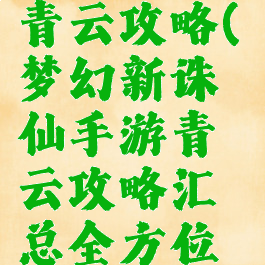 青云攻略(
梦幻新诛
仙手游青
云攻略汇
总全方位